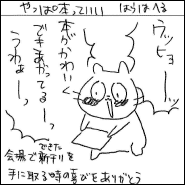 やっぱ本っていい　はらぱへる
ウッヒョー
本がかわいく
できあがってるーっ
うわぁーっ
会場でできた新刊を
手に取る時の喜びをありがとう